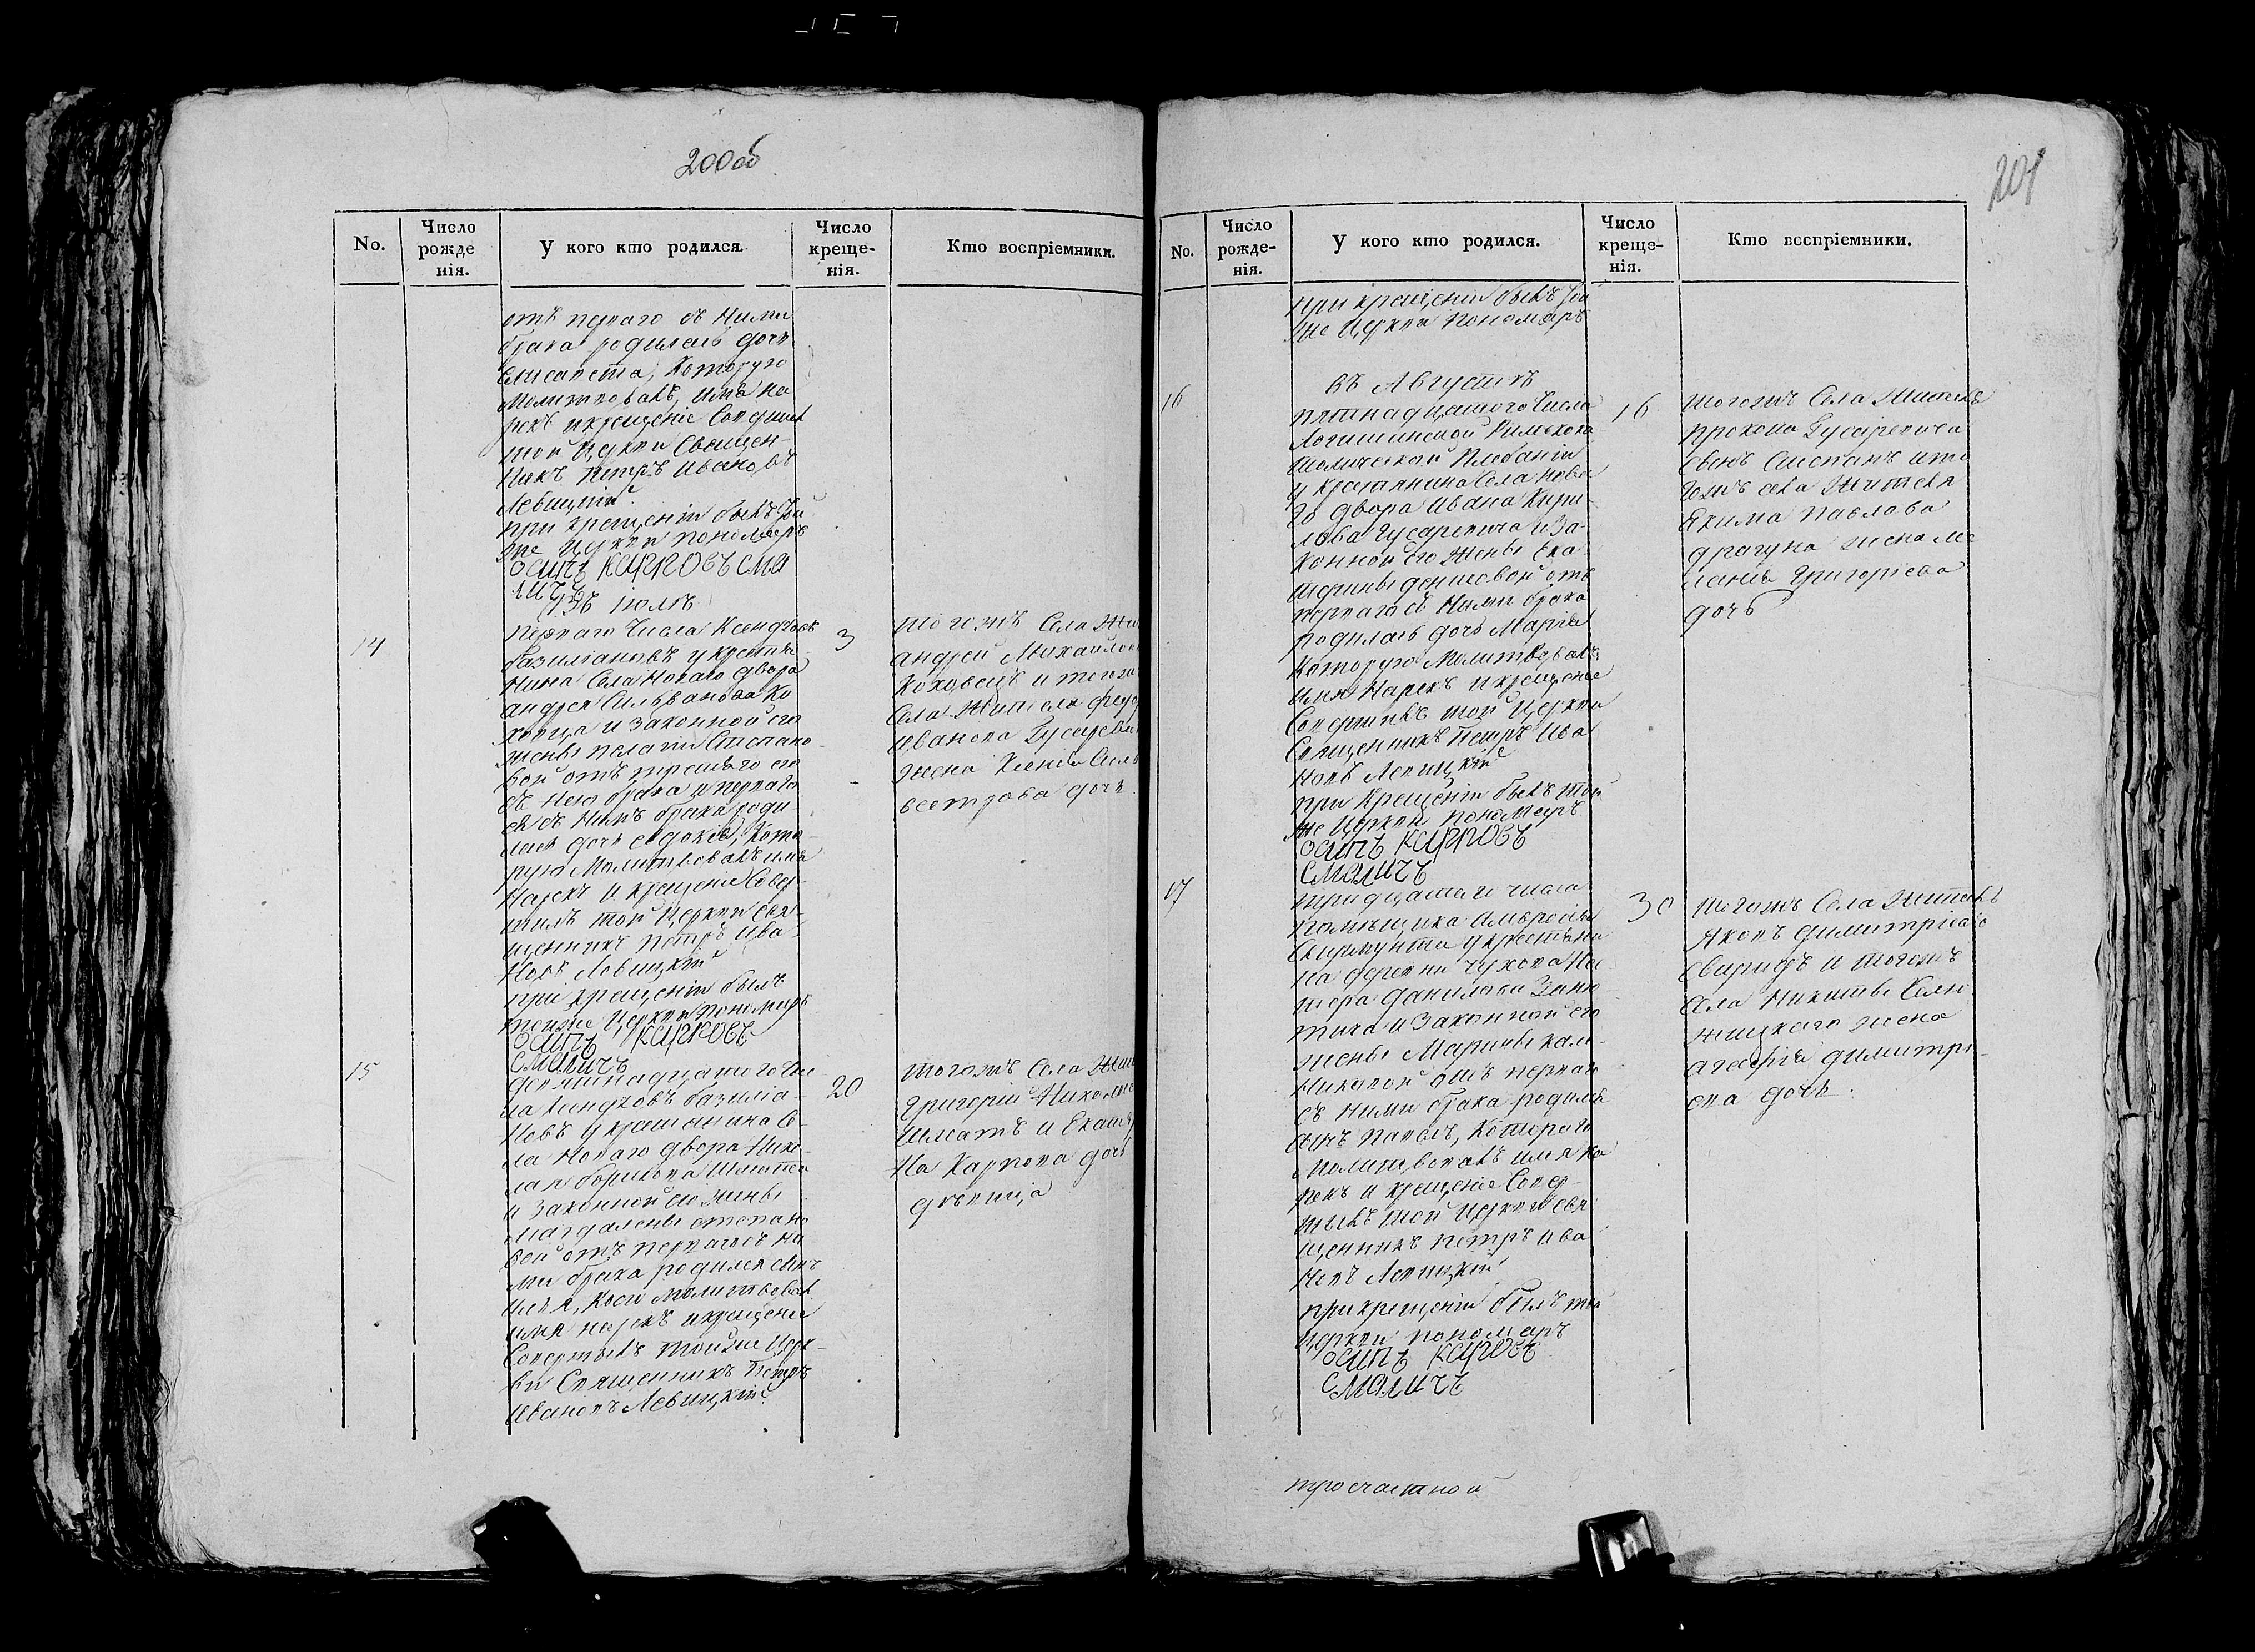 200об
No.
Число
рожде
нія.
У кого кто родился.
Число
креще-
нія.
Кто воспріемники.
отъ перваго съ ними
брака родилась дочь
Елисавета, которую
молитвовалъ, имя на
рекъ и крещеніе совершил
той церкви священ-
никъ Петръ Ивановъ
Левицкій
при крещеніи былъ той
же церкви пономарь
осипъ карповъ сма
личъ
въ іюлѣ
14
перваго числа ксендзовъ
3
базиліановъ у крестья-
нина села Новаго двора
андрея Сильванова Ко
ховца и законной его
жены Пелагіи Степано-
вой отъ третьяго его
съ нею брака и перваго
ея съ нимъ брака роди
лась дочь евдокія, кото-
рую молитвовалъ имя
нарекъ и крещеніе совер-
шилъ той церкви свя-
щенникъ петръ Ива-
новъ Левицкій
при крещеніи былъ
тойже церкви пономарь
осипъ карповъ
смаличъ
тогожъ села жи
андрей Михайлов
Коховецъ и тогожъ
села жителя федо
иванова Гусареви
жена Ксенія Силь
вестрова дочь.
15
девятнадцатого чис
20
ла ксендзовъ базиліа-
новъ у крестьянина се-
ла Новаго двора Нико-
лая борисова Шмата
и законной его жены
магдалены степано
вой отъ перваго съ ни-
ми брака родился сынъ
Илья, коего молитвовал
имя нарекъ и крещеніе
совершилъ тойже церк-
ви Священникъ Петръ
Ивановъ Левицкій
тогожъ села жи
григорій Никола
Шматъ и Екатер
на Карпова дочь
дѣвица
201
No.
Число
рожде-
нія.
У кого кто родился.
Число
креще-
нія.
Кто воспріемники.
при крещеніи былъ той
же церкви пономарь
въ Августѣ
16
пятнадцатого числа
16
Логишинской Римскока
толической Плебаніи
у крестьянина села Ново
го двора Ивана Кири-
лова Гусаревича и за-
конной его жены Ека-
терины денисовой отъ
перваго съ ними брака
родилась дочь Марія
которую молитвовалъ
имя нарекъ и крещеніе
совершилъ той церкви
Священникъ Петръ Ива
новъ Левицкій
при крещеніи былъ той
же церкви пономарь
осипъ карповъ
смаличъ
тогожъ села житель
прокопа Гусаревича
сынъ Степанъ и то
гожъ села жителя
Якима павлова
драгуна жена Ме
ланія Григоріева
дочь
17
тридцатаго числа
30
помѣщика Амвросія
Скирмунта у крестьяни
на деревни Чухова Не-
стера данилова
и законной его
жены Марины кали-
никовой отъ перваго
съ ними брака родился
сынъ павелъ, котораго
молитвовалъ имя на
рекъ и крещеніе совер-
шилъ той церкви свя
щенникъ петръ ива
новъ Левицкій
при крещеніи былъ той
церкви пономарь
осипъ карповъ
смаличъ
тогожъ села житель
Яковъ димитріевъ
Свиридъ и тогожъ
села Никиты
жена
агафія димитрі-
ева дочь.